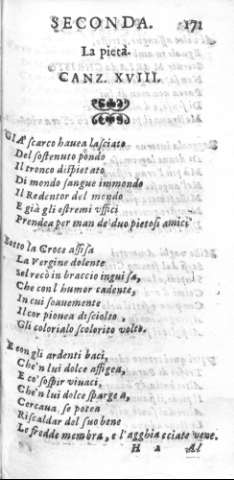 SECONDA. 171
La pietà.
CANZ. XVIII.
GIA' scarco hauea lasciato
Del sostenuto pondo
Il tronco dispietato
Di mondo sangue immondo
Il Redentor del mondo
E già gli estremi vffici
Prendea per man de' duo pietosi amici.
Sotto la Croce assisa
La Vergine dolente
Sel recò in braccio in guisa,
Che con l'humor cadente,
In cui soauemente
Il cor pioueа disciolto
Gli colorì lo scolorito volto.
E con gli ardenti baci,
Che'n lui dolce affigea,
E co' sospir viuaci,
Che'n lui dolce spargea,
Cercaua, se potea
Riscaldar del suo bene
Le fredde membra, e l'agghiacciate vene.
H 2 Al